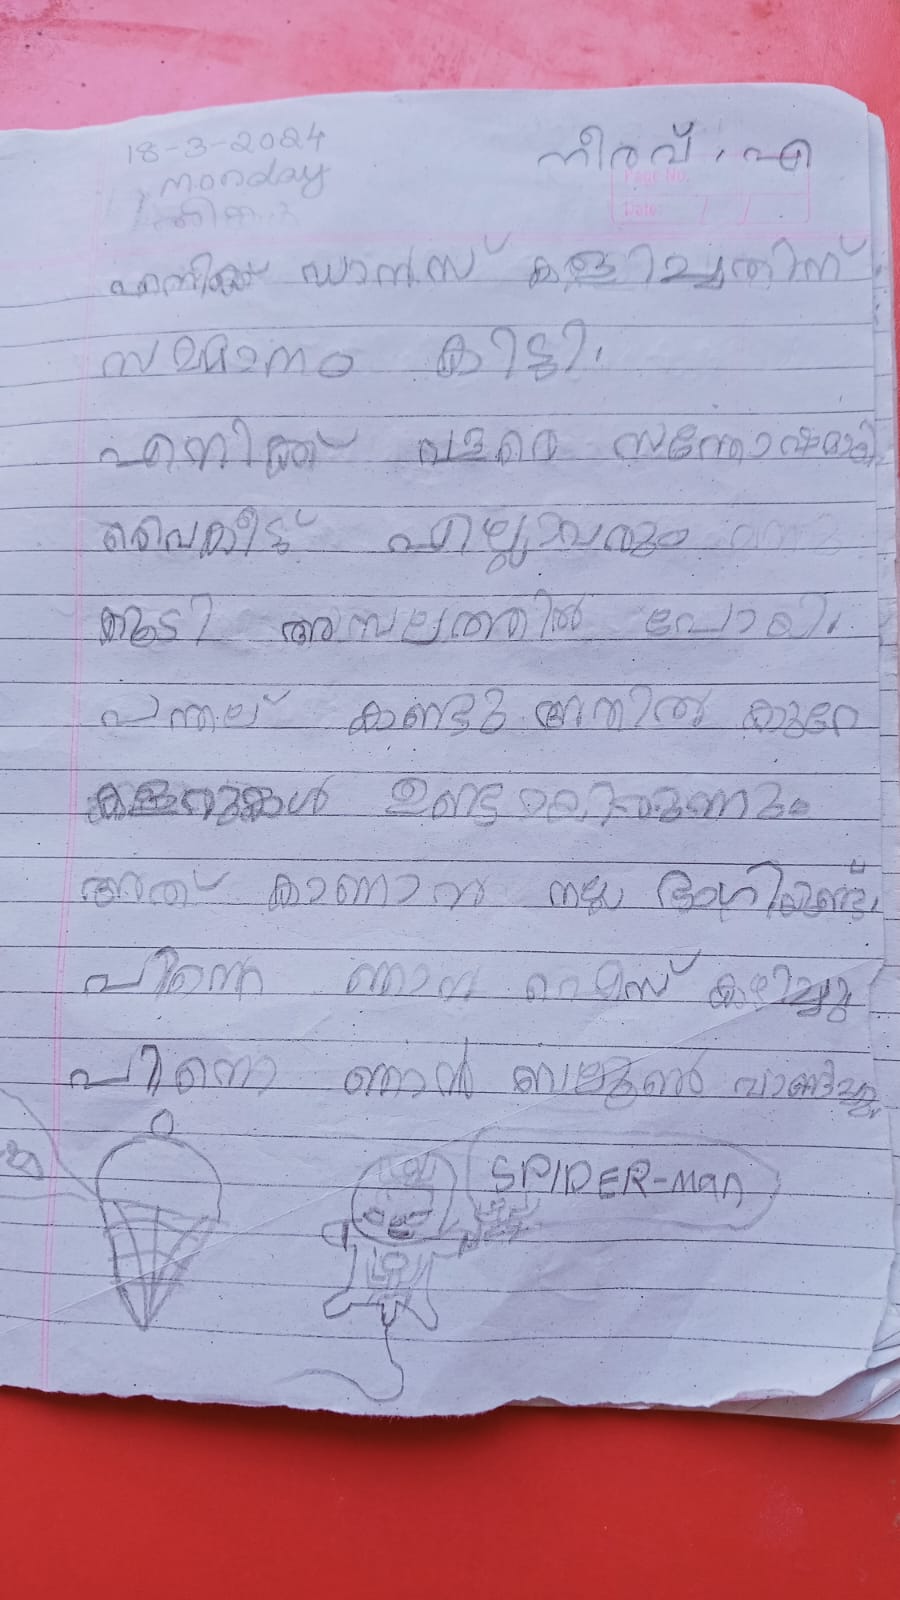 18-3-2024
നീരവ്. എ
monday
Page No.
Date: / /
എനിക്ക് ഡാൻസ് കളിച്ചതിന്
സമ്മാനം കിട്ടി.
എനിക്ക് വളരെ സന്തോഷമായി
വൈകീട്ട് എല്ലാവരും
കൂടി അമ്പലത്തിൽ പോയി.
പന്തല് കണ്ടു അതിൽ കുറേ
കളറുകൾ ഉണ്ടായിരുന്നു
അത് കാണാൻ നല്ല ഭംഗിയുണ്ട്.
പിന്നെ ഞാൻ ഐസ് കഴിച്ചു
പിന്നെ ഞാൻ ബലൂൺ വാങ്ങിച്ചു.
SPIDER-Man